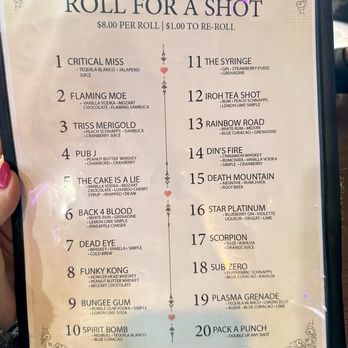 ROLL FOR A SHOT
$8.00 PER ROLL | $1.00 TO RE-ROLL
1 CRITICAL MISS
• TEQUILA BLANCO • JALAPENO
JUICE
2 FLAMING MOE
• VANILLA VODKA • MOZART
CHOCOLATE • FLAMING SAMBUCA
3 TRISS MERIGOLD
• PEACH SCHNAPPS • SAMBUCA
• CRANBERRY JUICE
4 PUB J
• PEANUT BUTTER WHISKEY
• CHAMBORD • CRANBERRY
5 THE CAKE IS A LIE
• VANILLA VODKA • MOZART
CHOCOLATE • LUXARDO CHERRY
SYRUP • WHIPPED CREAM
6 BACK 4 BLOOD
• WHITE RUM • GRENADINE
• LEMON LIME SIMPLE
• PINEAPPLE CHASER
7 DEAD EYE
• WHISKEY • VANILLA • SIMPLE
• COLD BREW
8 FUNKY KONG
• HOWLER HEAD WHISKEY
• PEANUT BUTTER WHISKEY
• MOZART CHOCOLATE
9 BUNGEE GUM
• BUBBLE GUM VODKA • SIMPLE
• LEMON LIME SODA
10 SPIRIT BOMB
• REDBULL • TEQUILA BLANCO
• BLUE CURACAO
11 THE SYRINGE
• GIN • STRAWBERRY PUREE
• GRENADINE
12 IROH TEA SHOT
• RUM • PEACH SCHNAPPS
• LEMON LIME SIMPLE
13 RAINBOW ROAD
• WHITE RUM • MIDORI
• BLUE CURACAO • GRENADINE
14 DIN'S FIRE
• CINNAMON WHISKEY
• RUMCHATA • VANILLA VODKA
• SIMPLE • CRANBERRY
15 DEATH MOUNTAIN
• ABSINTHE • RUMCHATA
• ROOT BEER
16 STAR PLATINUM
• BLUEBERRY GIN • VIOLETTE
LIQUEUR • ORGEAT • LIME
17 SCORPION
• KAHLUA
• ORANGE JUICE
18 SUB ZERO
• PEPPERMINT SCHNAPPS
• BLUE CURACAO • KAHLUA
19 PLASMA GRENADE
• TEQUILA BLANCO • LIMONCELLO
• AGAVE • BLUE CURACAO • LIME
20 PACK A PUNCH
• DOUBLE UP ANY SHOT